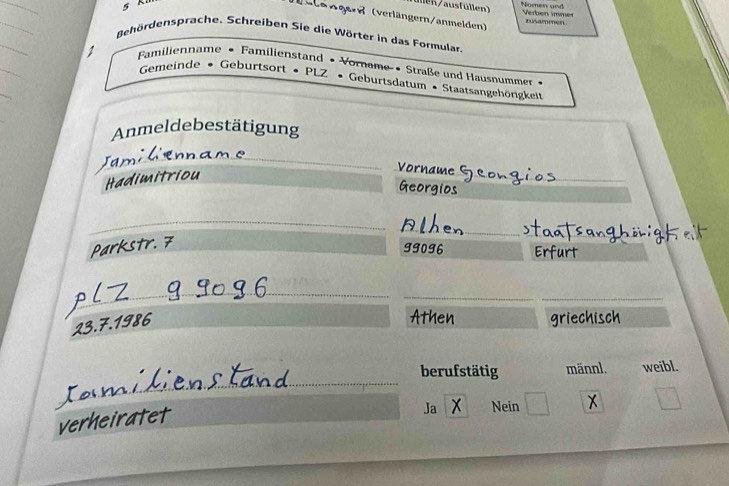 5
(verlängern/anmelden)
Nomen und
Verben immer
zusammen.
Behördensprache. Schreiben Sie die Wörter in das Formular.
Familienname • Familienstand • Vorname • Straße und Hausnummer •
Gemeinde • Geburtsort • PLZ • Geburtsdatum • Staatsangehörigkeit
Anmeldebestätigung
Familienname Vorname Georgios
Hadimitriou Georgios
Athen staatsanghörigkeit
Parkstr. 7 99096 Erfurt
PLZ 99096
23.7.1986 Athen griechisch
Familienstand berufstätig männl. weibl.
verheiratet Ja X Nein X